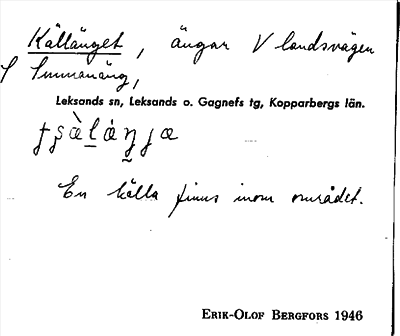 Källänget, ängar V landsvägen
S Simmanäng,
Leksands sn, Leksands o. Gagnefs tg, Kopparbergs län.
En källa finns inom området.
ERIK-OLOF BERGFORS 1946